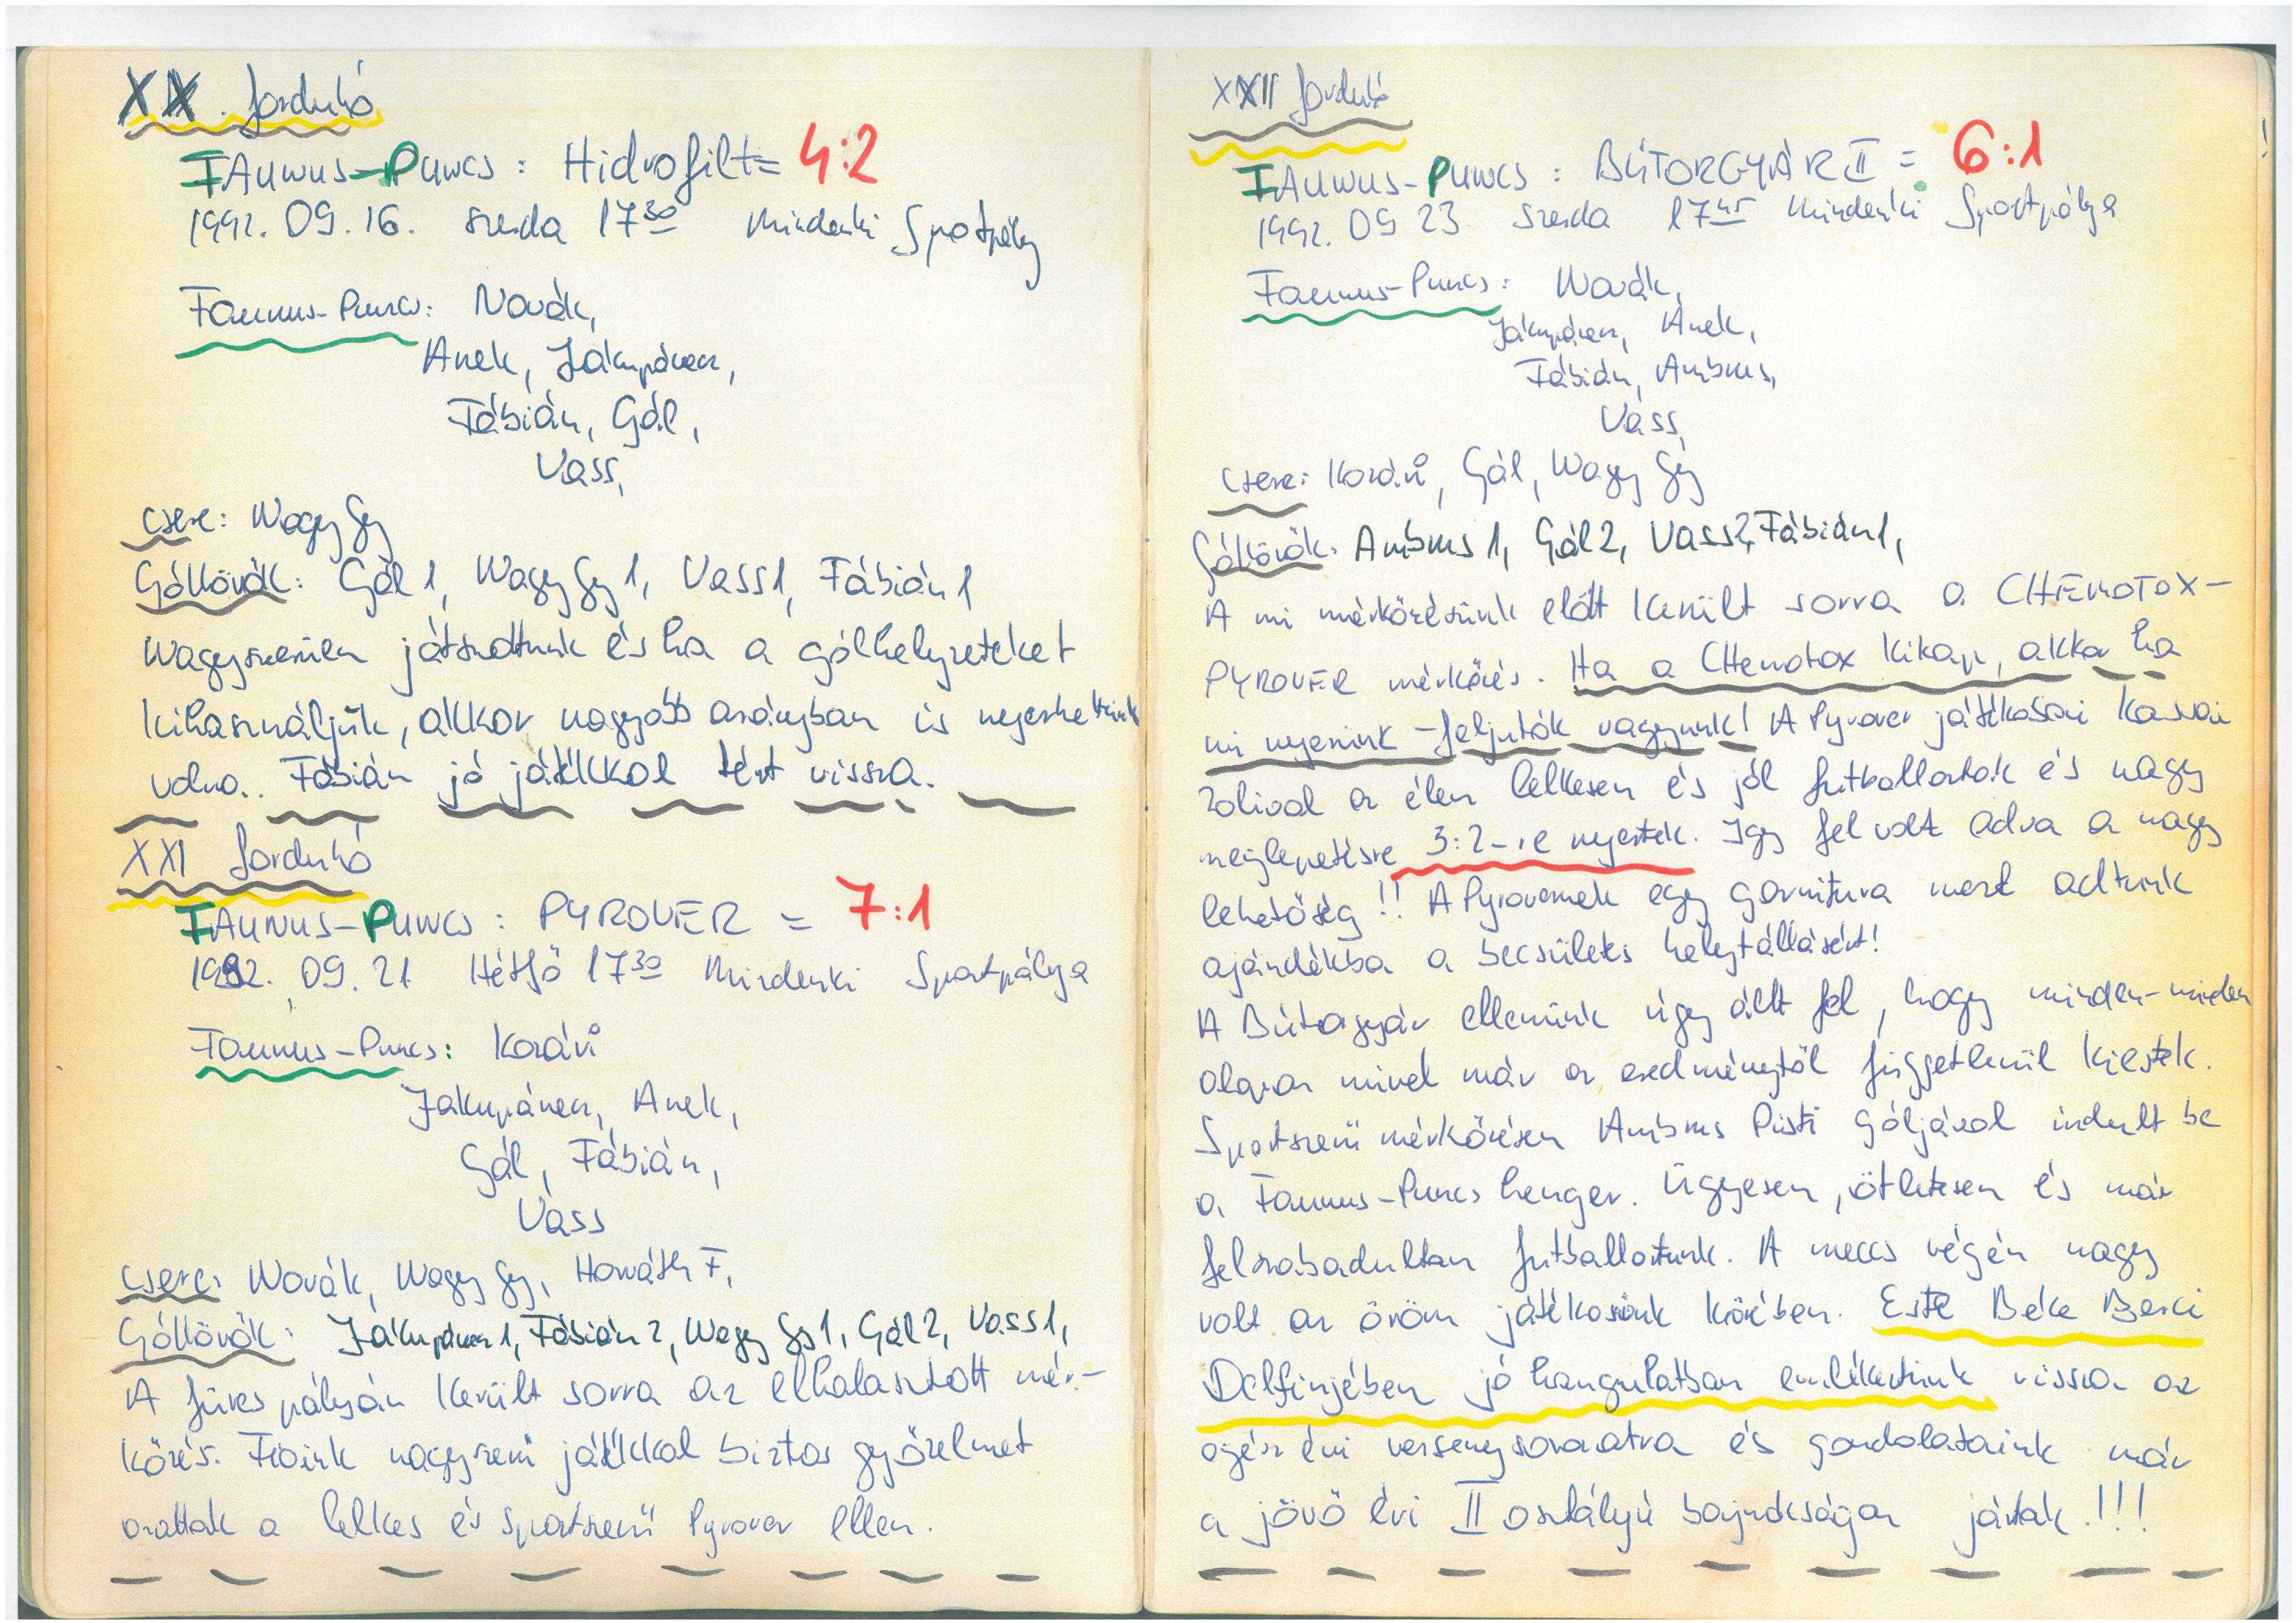 XX. forduló
FAUNUS-PUNCS: Hidrofilt= 4:2
1992. 09. 16. szerda 17 30 Mindenki Sportpály
Faunus-Puncs: Novák,
Anek, Jákupánecz,
Fábián, Gál,
Vass,
csere: Nagy Gy
Góllövők: Gál 1, Nagy Gy 1, Vass 1, Fábián 1
Nagyszerűen játszottunk és ha a gólhelyzeteket
kihasználjuk, akkor nagyobb arányban is nyerhettünk
volna.. Fábián jó játékkal tért vissza.
XXI forduló
FAUNUS-PUNCS: PYROVER = 7:1
1992. 09. 21 Hétfő 17 30 Mindenki Sportpálya
Faunus-Puncs: Kozári
Jakupánecz, Anek,
Gál, Fábián,
Vass
csere: Novák, Nagy Gy, Horváth F,
Góllövők: Jákupánecz 1, Fábián 2, Nagy Gy 1, Gál 2, Vass 1,
A füves pályán került sorra az elhalasztott mér-
kőzés. Fiúink nagyszerű játékkal biztos győzelmet
arattak a lelkes és sportszerű Pyrover ellen.
XXII forduló
FAUNUS-PUNCS: BÚTORGYÁR II = 6:1
1992. 09 23. Szerda 17 45 Mindenki Sportpálya
Faunus-Puncs: Novák,
Jákupánecz, Anek,
Fábián, Ambrus,
Vass,
csere: Kozári, Gál, Nagy Gy
Góllövők: Ambrus 1, Gál 2, Vass 2, Fábián 1,
A mi mérkőzésünk előtt került sorra a CHEMOTOX-
PYROVER mérkőzés. Ha a CHemotox kikap, akkor ha
mi nyerünk - feljutók vagyunk! A Pyrover játékosai Kassai
Zolival az élen lelkesen és jól futballoztak és nagy
meglepetésre 3:2-re nyertek. Igy fel volt adva a nagy
lehetőség!! A Pyrovernek egy garnitura mezt adtunk
ajándékba a becsületes helytállásért!
A Bútorgyár ellenünk úgy állt fel, hogy minden-minden
alapon mivel már az eredménytől függetlenül kiestek.
Sportszerű mérkőzésen Ambrus Pisti góljával indult be
a Faunus-Puncs henger. Ügyesen, ötletesen és már
felszabadultan futballoztunk. A meccs végén nagy
volt az öröm játékosaink körében. Este Béke Berci
Delfinjében jó hangulatban emlékeztünk vissza az
egész évi versenysorozatra és gondolataink már
a jövő évi II osztályú bajnokságon jártak.!!!